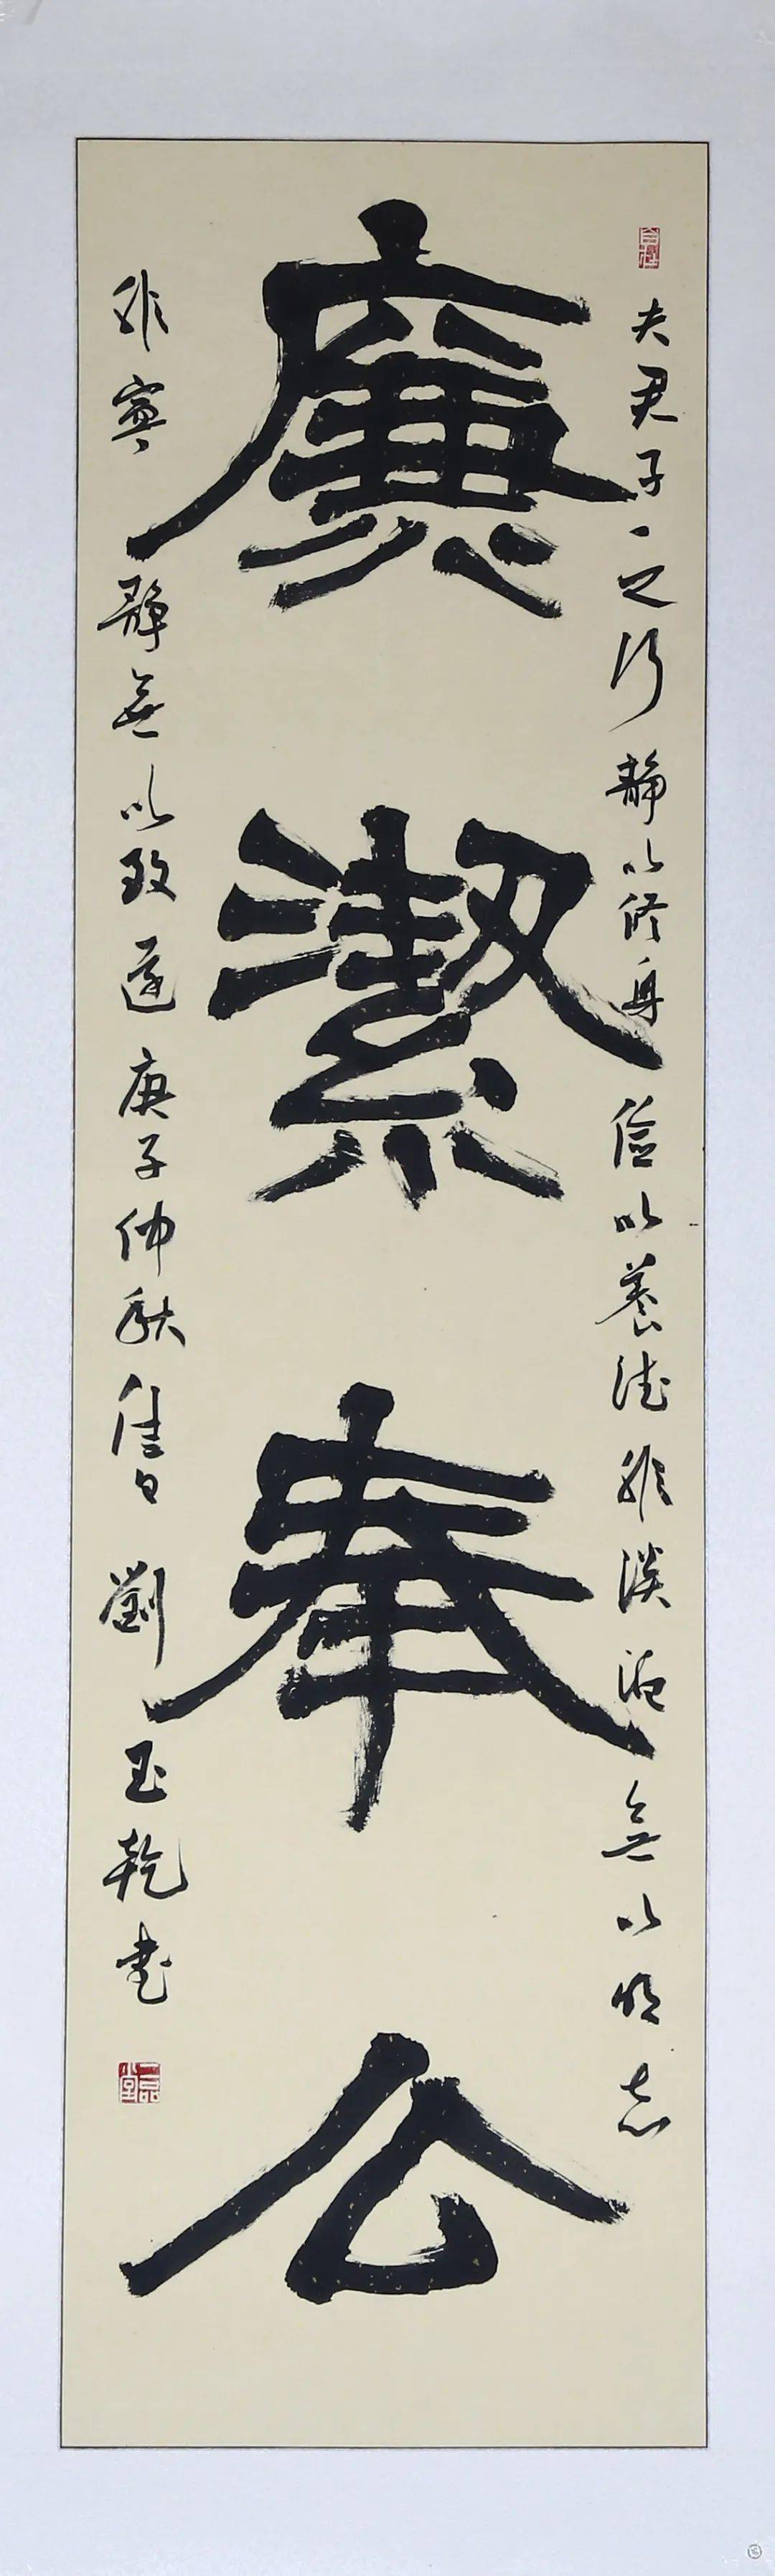 夫君子之行静以修身儉以養德非淡泊無以明志
廉潔奉公
非寧靜無以致遠庚子仲秋佳日劉玉乾書